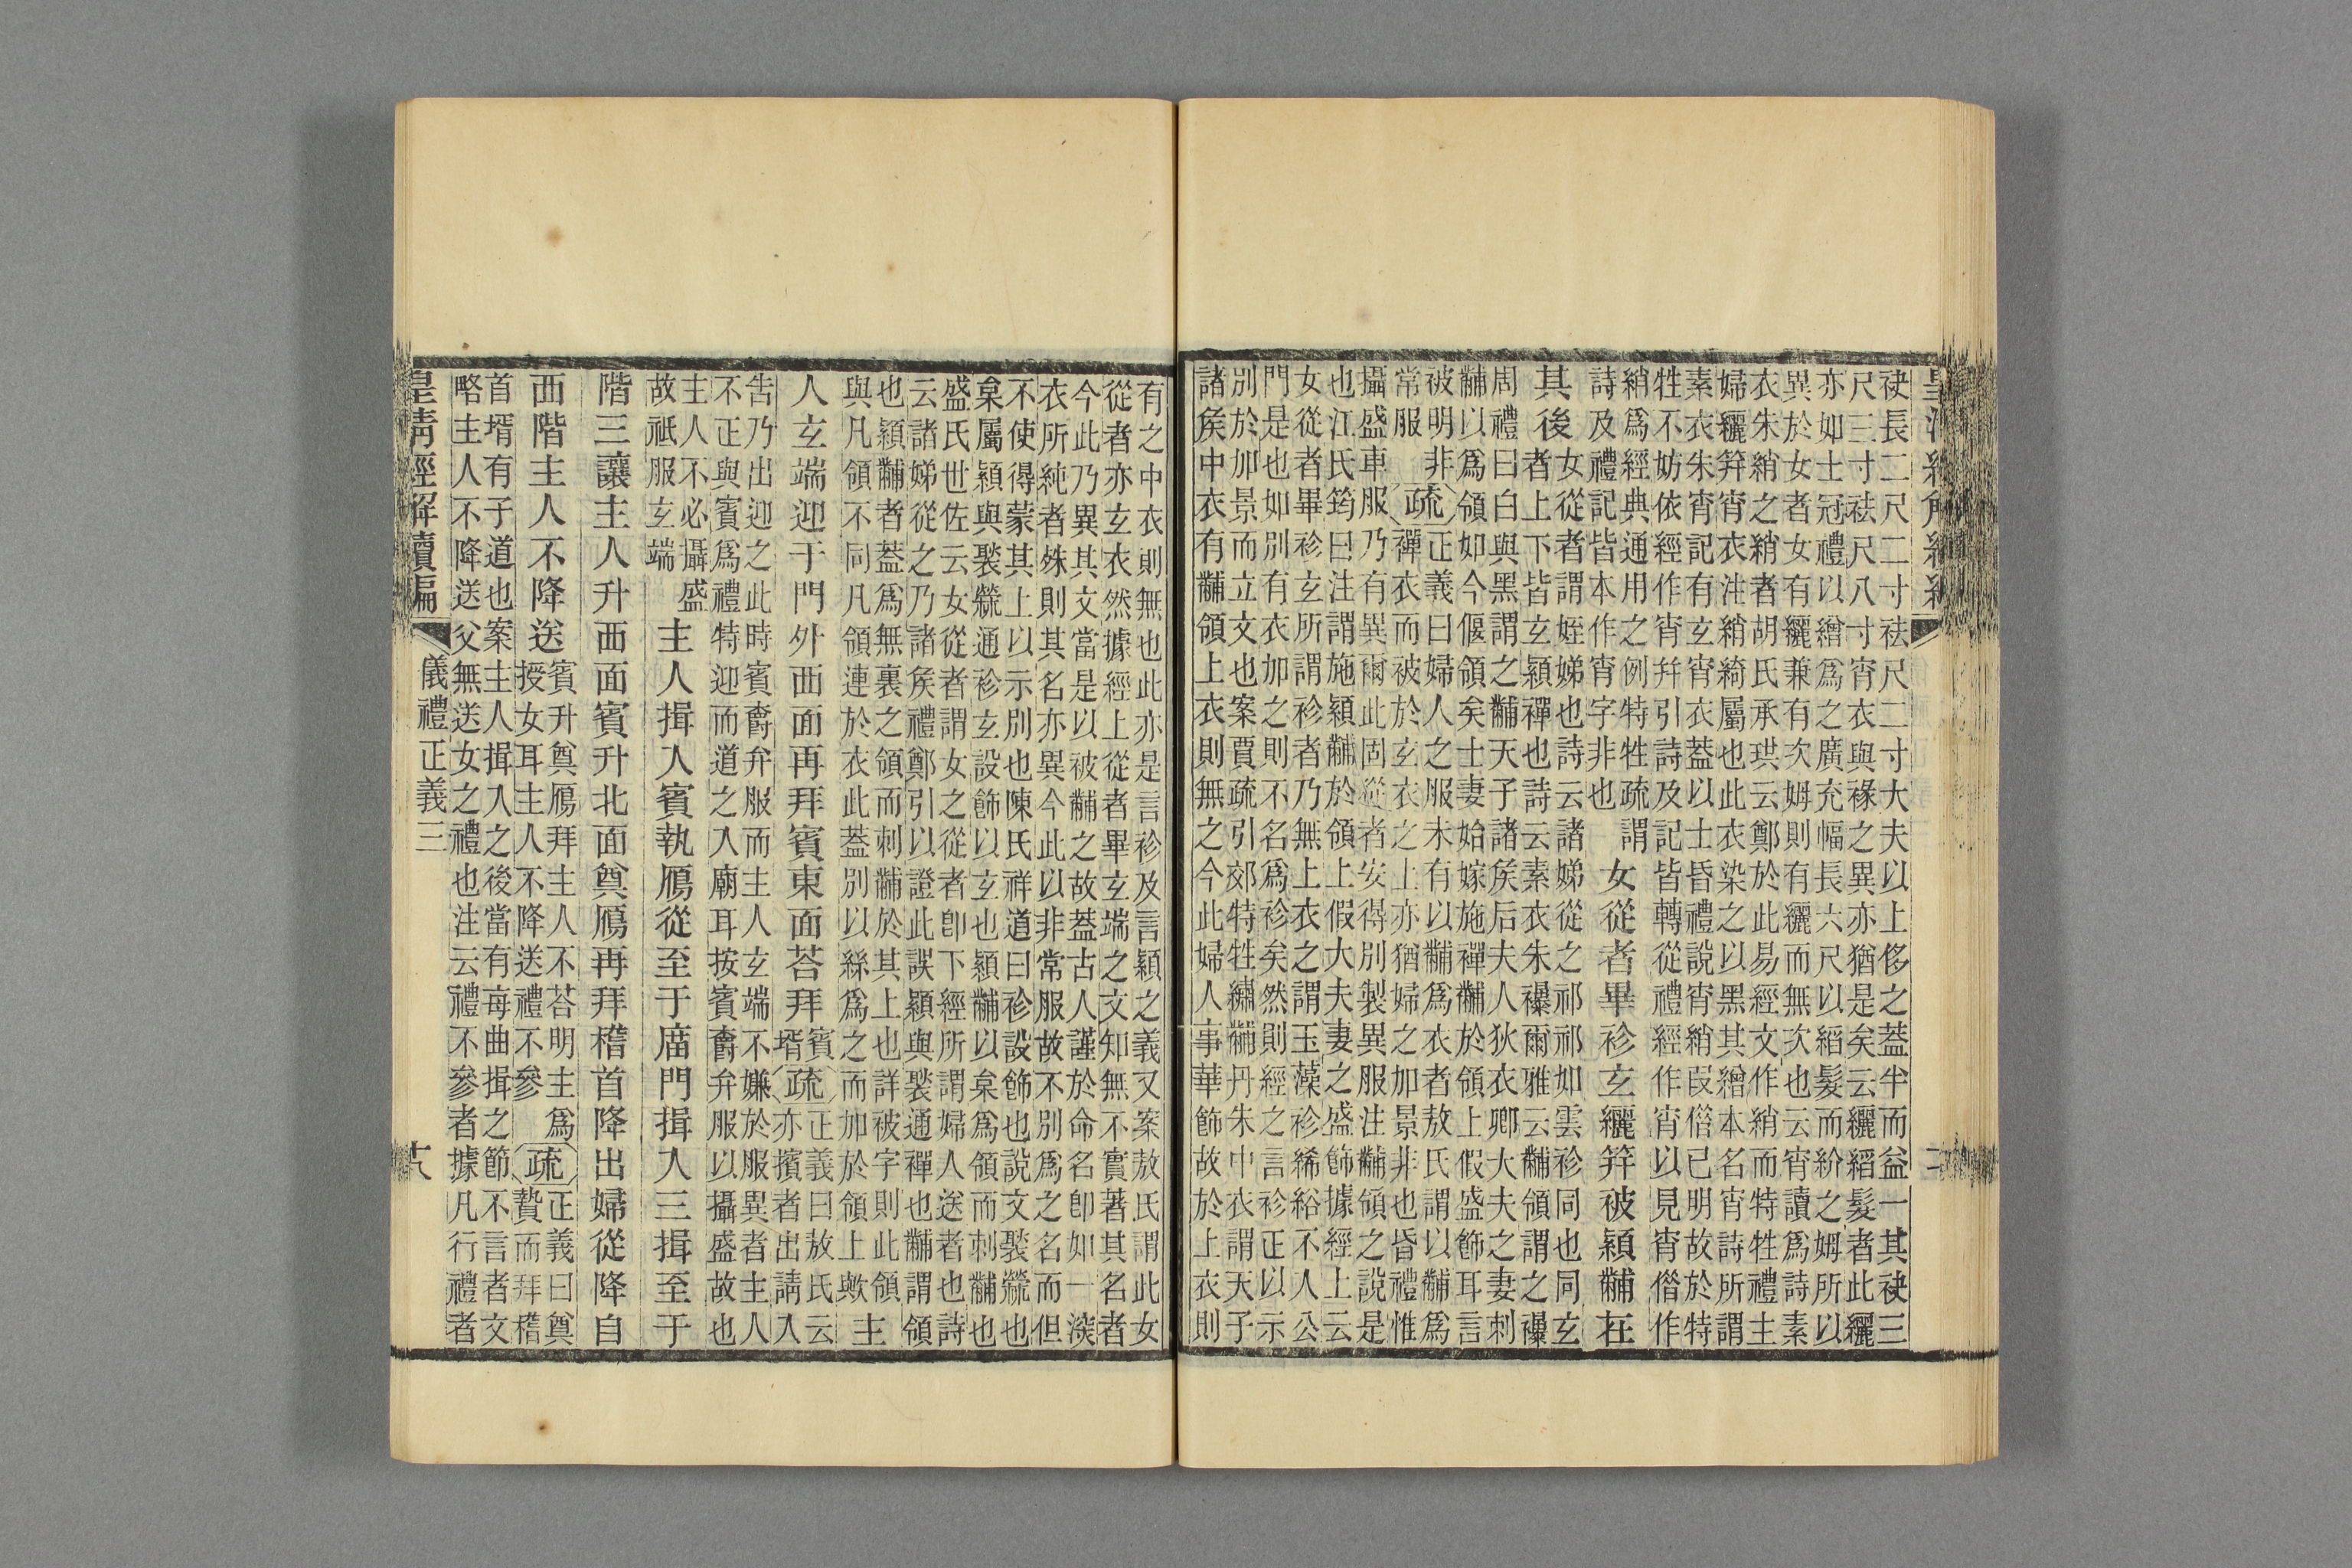 袂長二尺二寸袪尺二寸大夫以上侈之蓋半而益一其袂三
尺三寸袪尺八寸宵衣與褖之異亦猶是矣云纚縚髮者此纚
亦如士冠禮以繒爲之廣充幅長六尺以縚髮而紒之姆所以
異於女者女有纚兼有次姆則有纚而無次也云宵讀爲詩素
衣朱綃之綃者胡氏承珙云鄭於此易經文作綃而特牲禮主
婦纚笄宵衣注綃綺屬也此衣染之以黑其繒本名宵詩所謂
素衣朱宵記有玄宵衣蓋以士昏禮說宵綃叚偕已明故於特
牲不妨依經作宵幷引詩及記皆轉從禮經作宵以見宵偕作
綃爲經典通用之例特牲疏謂
詩及禮記皆本作宵字非也
女從者畢袗玄纚笄被穎黼在
其後
女從者謂姪娣也詩云諸娣從之祁祁如雲袗同也同玄
者上下皆玄穎禪也詩云素衣朱襮爾雅云黼領謂之襮
周禮曰白與黑謂之黼天子諸矦后夫人狄衣卿大夫之妻刺
黼以爲領如今偃領矣士妻始嫁施禪黼於領上假盛飾耳言
被明非
常服
疏
正義曰婦人之服未有以黼爲衣者敖氏謂以黼爲
禪衣而被於玄衣之上亦猶婦之加景非也昏禮惟
攝盛車服乃有異爾此固從者安得別製異服注黼領之說是
也江氏筠曰注謂施穎黼於領上假大夫妻之盛飾據經上云
女從者畢袗玄所謂袗者乃無上衣之謂玉藻袗絺綌不人公
門是也如別有衣加之則不名爲袗矣然則經之言袗正以示
別於加景而立文也案賈疏引郊特牲繡黼丹朱中衣謂天子
諸矦中衣有黼領上衣則無之今此婦人事華飾故於上衣則
有之中衣則無也此亦是言袗及言穎之義又案敖氏謂此女
從者亦玄衣然據經上從者畢玄端之文知無不實著其名者
今此乃異其文當是以被黼之故蓋古人謹於命名卽如一㳄
衣所純者殊則其名亦異今此以非常服故不別爲之名而但
不使得蒙其上以示別也陳氏祥道曰袗設飾也說文褧檾也
枲屬穎與褧檾通袗玄設飾以玄也穎黼以枲爲領而刺黼也
盛氏世佐云女從者謂女之從者卽下經所謂婦人送者也詩
云諸娣從之乃諸矦禮鄭引以證此誤穎與褧通禪也黼謂領
也穎黼者蓋爲無裏之領而刺黼於其上也詳被字則此領
與凡領不同凡領連於衣此蓋別以絲爲之而加於領上歟
主
人玄端迎于門外西面再拜賓東面荅拜
賓
壻
疏
正義曰敖氏云
亦擯者出請入
告乃出迎之此時賓爵弁服而主人玄端不嫌於服異者主人
不正與賓爲禮特迎而道之入廟耳按賓爵弁服以攝盛故也
主人不必攝盛
故祇服玄端
主人揖入賓執鴈從至于廟門揖入三揖至于
階三讓主人升西面賓升北面奠鴈再拜稽首降出婦從降自
西階主人不降送
賓升奠鴈拜主人不荅明主爲
授女耳主人不降送禮不參
疏
正義曰奠
贄而拜稽
首壻有子道也案主人揖入之後當有每曲揖之節不言者文
略主人不降送父無送女之禮也注云禮不參者據凡行禮者
皇清經解續編
儀禮正義三